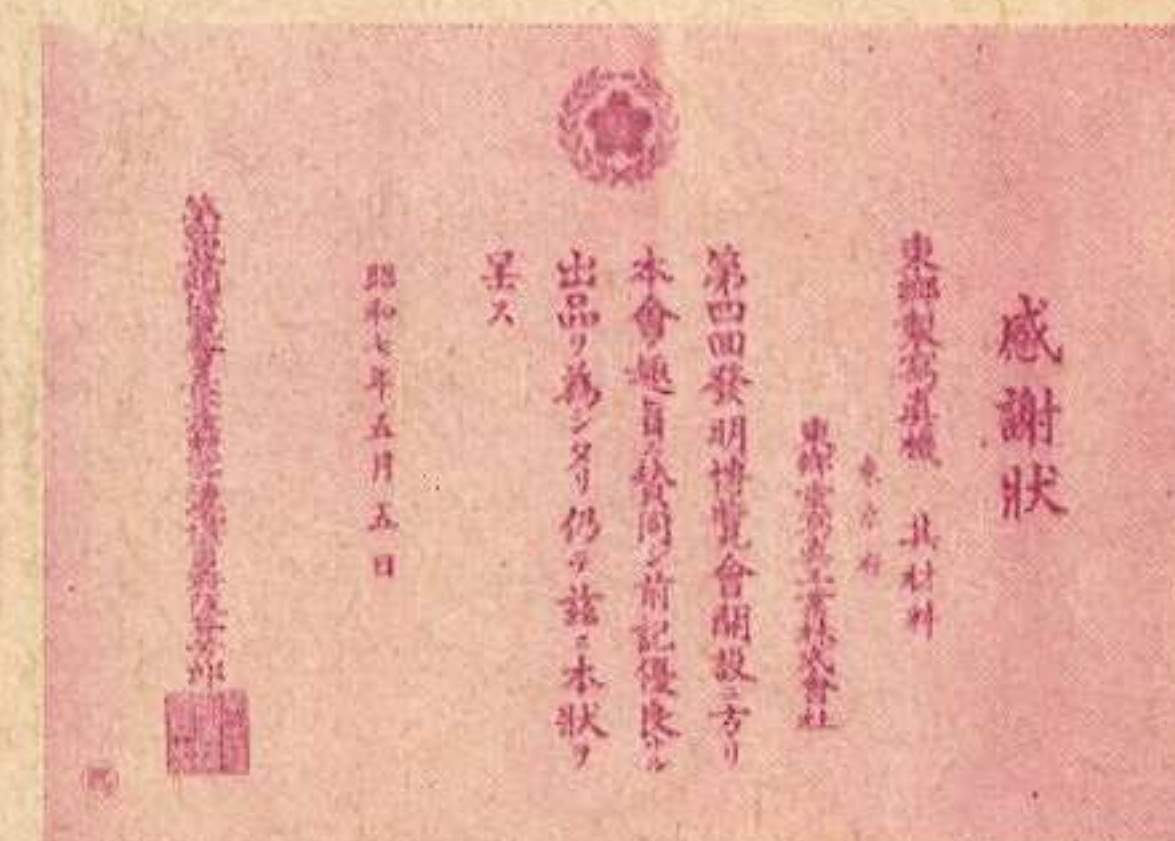 感謝狀
東郷製寫眞機 其材料
東京府
東郷寫眞工業株式會社
第四回發明博覽會開設ニ方リ
本會趣旨ニ賛同シ前記優良ナル
出品ヲ為シタリ仍テ茲ニ本狀ヲ
呈ス
昭和七年五月五日